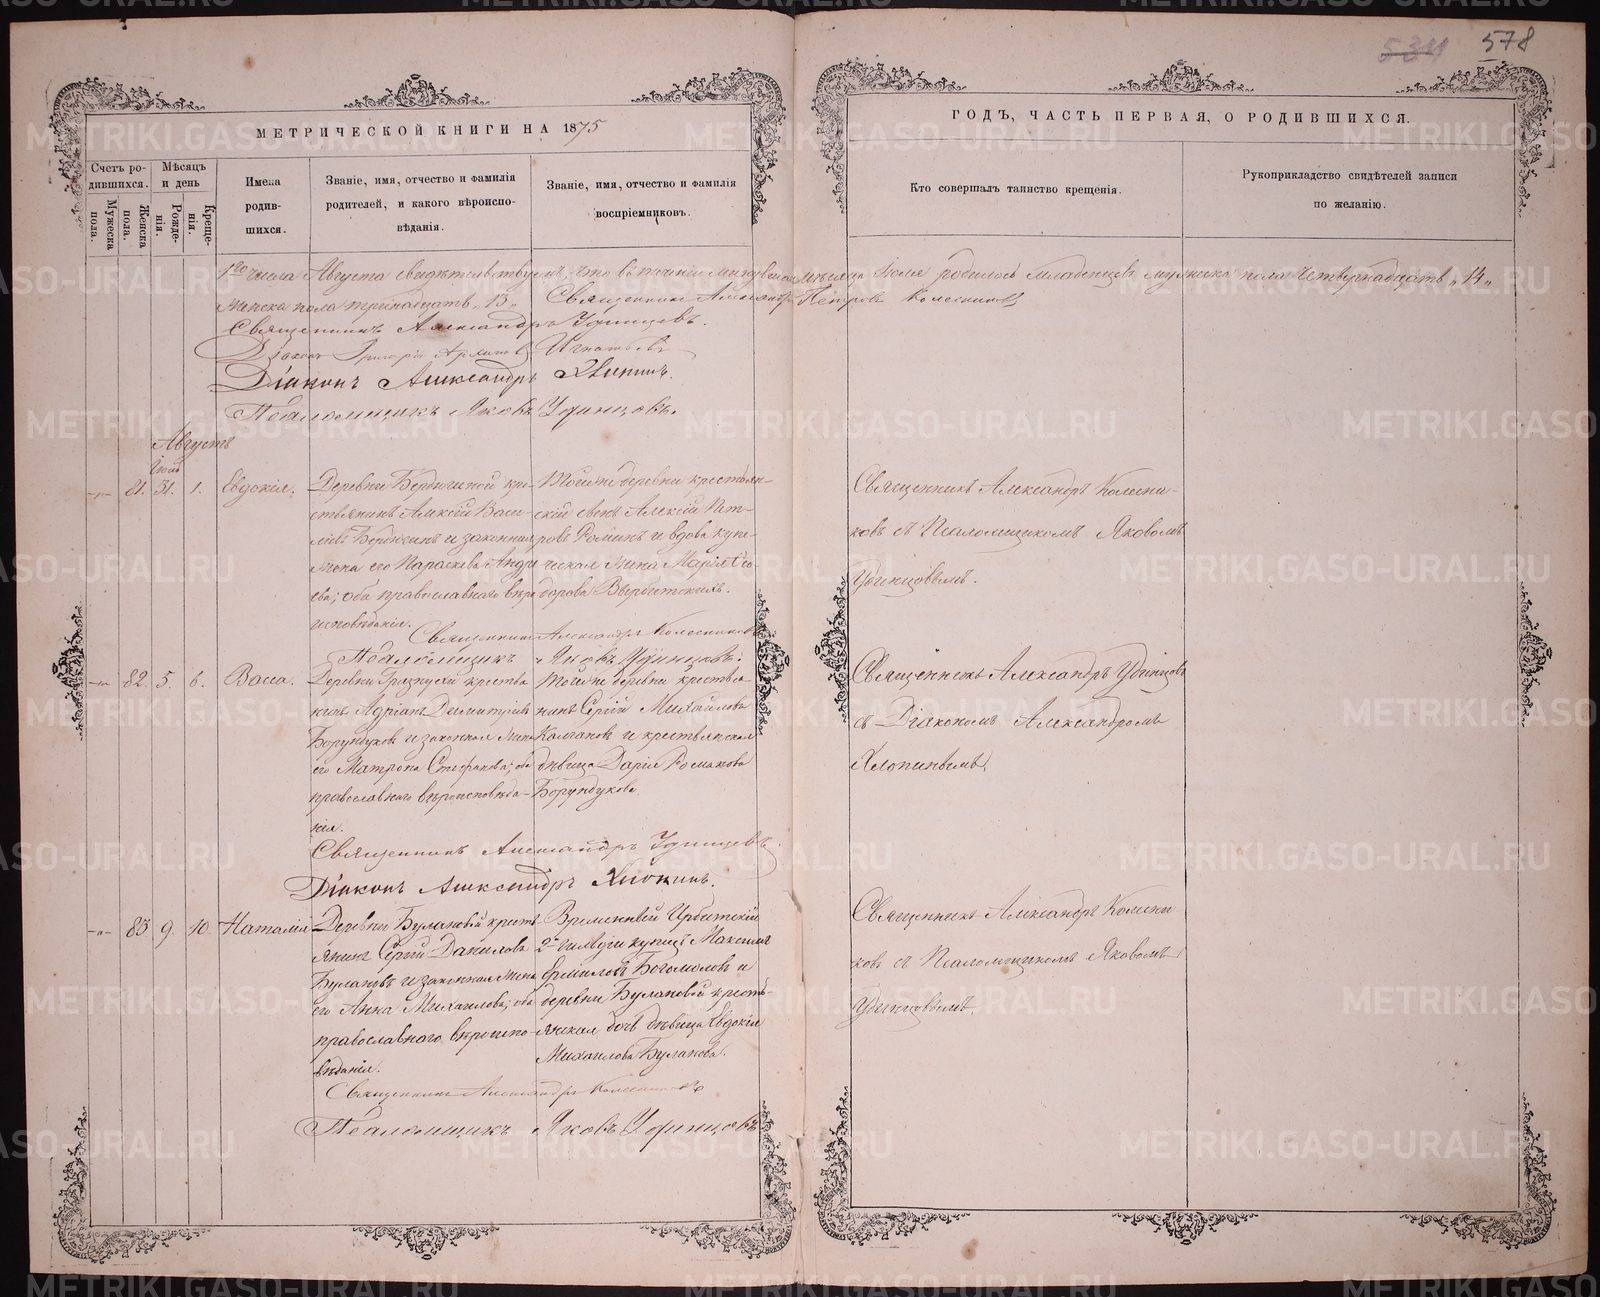 534 578
МЕТРИЧЕСКОЙ КНИГИ НА 1875
ГОДЪ, ЧАСТЬ ПЕРВАЯ, О РОДИВШИХСЯ.
Счетъ ро-
дившихся.
Мужеска пола.
Женска пола.
Мѣсяцъ
и день
Рожде-
нія.
Креще-
нія.
Имена
родив-
шихся.
Званіе, имя, отчество и фамилія
родителей, и какого вѣроиспо-
вѣданія.
Званіе, имя, отчество и фамилія
воспріемниковъ.
Кто совершалъ таинство крещенія.
Рукоприкладство свидѣтелей записи
по желанію.
1го числа Августа свидѣтельствуемъ, что въ теченіи мѣсяца Іюля родилось младенцевъ мужеска пола четырнадцать „14„
женска пола тринадцать „13„ Священникъ Александръ Петровъ Колесниковъ
Священникъ Александръ Удинцевъ.
Діаконъ Григорій Игнатьевъ
Діаконъ Александръ Хлопинъ.
Псаломщикъ Яковъ Удинцовъ.
Августъ
Іюль
-„- 81. 31. 1. Евдокія.
Деревни Бердюгиной кре-
стьянинъ Алексѣй Васи-
льевъ Бердюгинъ и законная
жена его Параскева Андре-
ева; оба православнаго вѣро-
исповѣданія.
Тойже деревни крестьян-
скій сынъ Алексѣй Пет-
ровъ Роминъ и вдова купе-
ческая жена Марія Ѳео-
дорова
Священникъ Александръ Колесни-
ковъ съ Псаломщикомъ Яковомъ
Удинцовымъ.
Священникъ Александръ Колесниковъ
Псаломщикъ Яковъ Удинцовъ.
-„- 82. 5. 6. Васса.
Деревни крестья
нинъ Адріанъ Димитріевъ
Борундуковъ и законная жена
его Матрона Стефанова; оба
православнаго вѣроисповѣда-
нія.
Тойже деревни крестья
нинъ Сергій Михайловъ
Колчановъ и крестьянская
дѣвица Дарія Романова
Борундукова.
Священникъ Александръ Удинцовъ
съ Діакономъ Александромъ
Хлопинымъ.
Священникъ Александръ Удинцевъ.
Діаконъ Александръ Хлопинъ.
-„- 83 9. 10. Наталія
Деревни Булановой кресть
янинъ Сергій Даниловъ
Булановъ и законная жена
его Анна Михаилова; оба
православнаго вѣроиспо-
вѣданія.
Временный Ирбитскій
2й гильдіи купецъ Максимъ
Ермиловъ Богомоловъ и
деревни Булановой кресть-
янская дочь дѣвица Евдокія
Михаилова Буланова.
Священникъ Александръ Колесни
ковъ съ Псаломщикомъ Яковомъ
Удинцовымъ.
Священникъ Александръ Колесниковъ
Псаломщикъ Яковъ Удинцовъ
METRIKI.GASO-URAL.RU